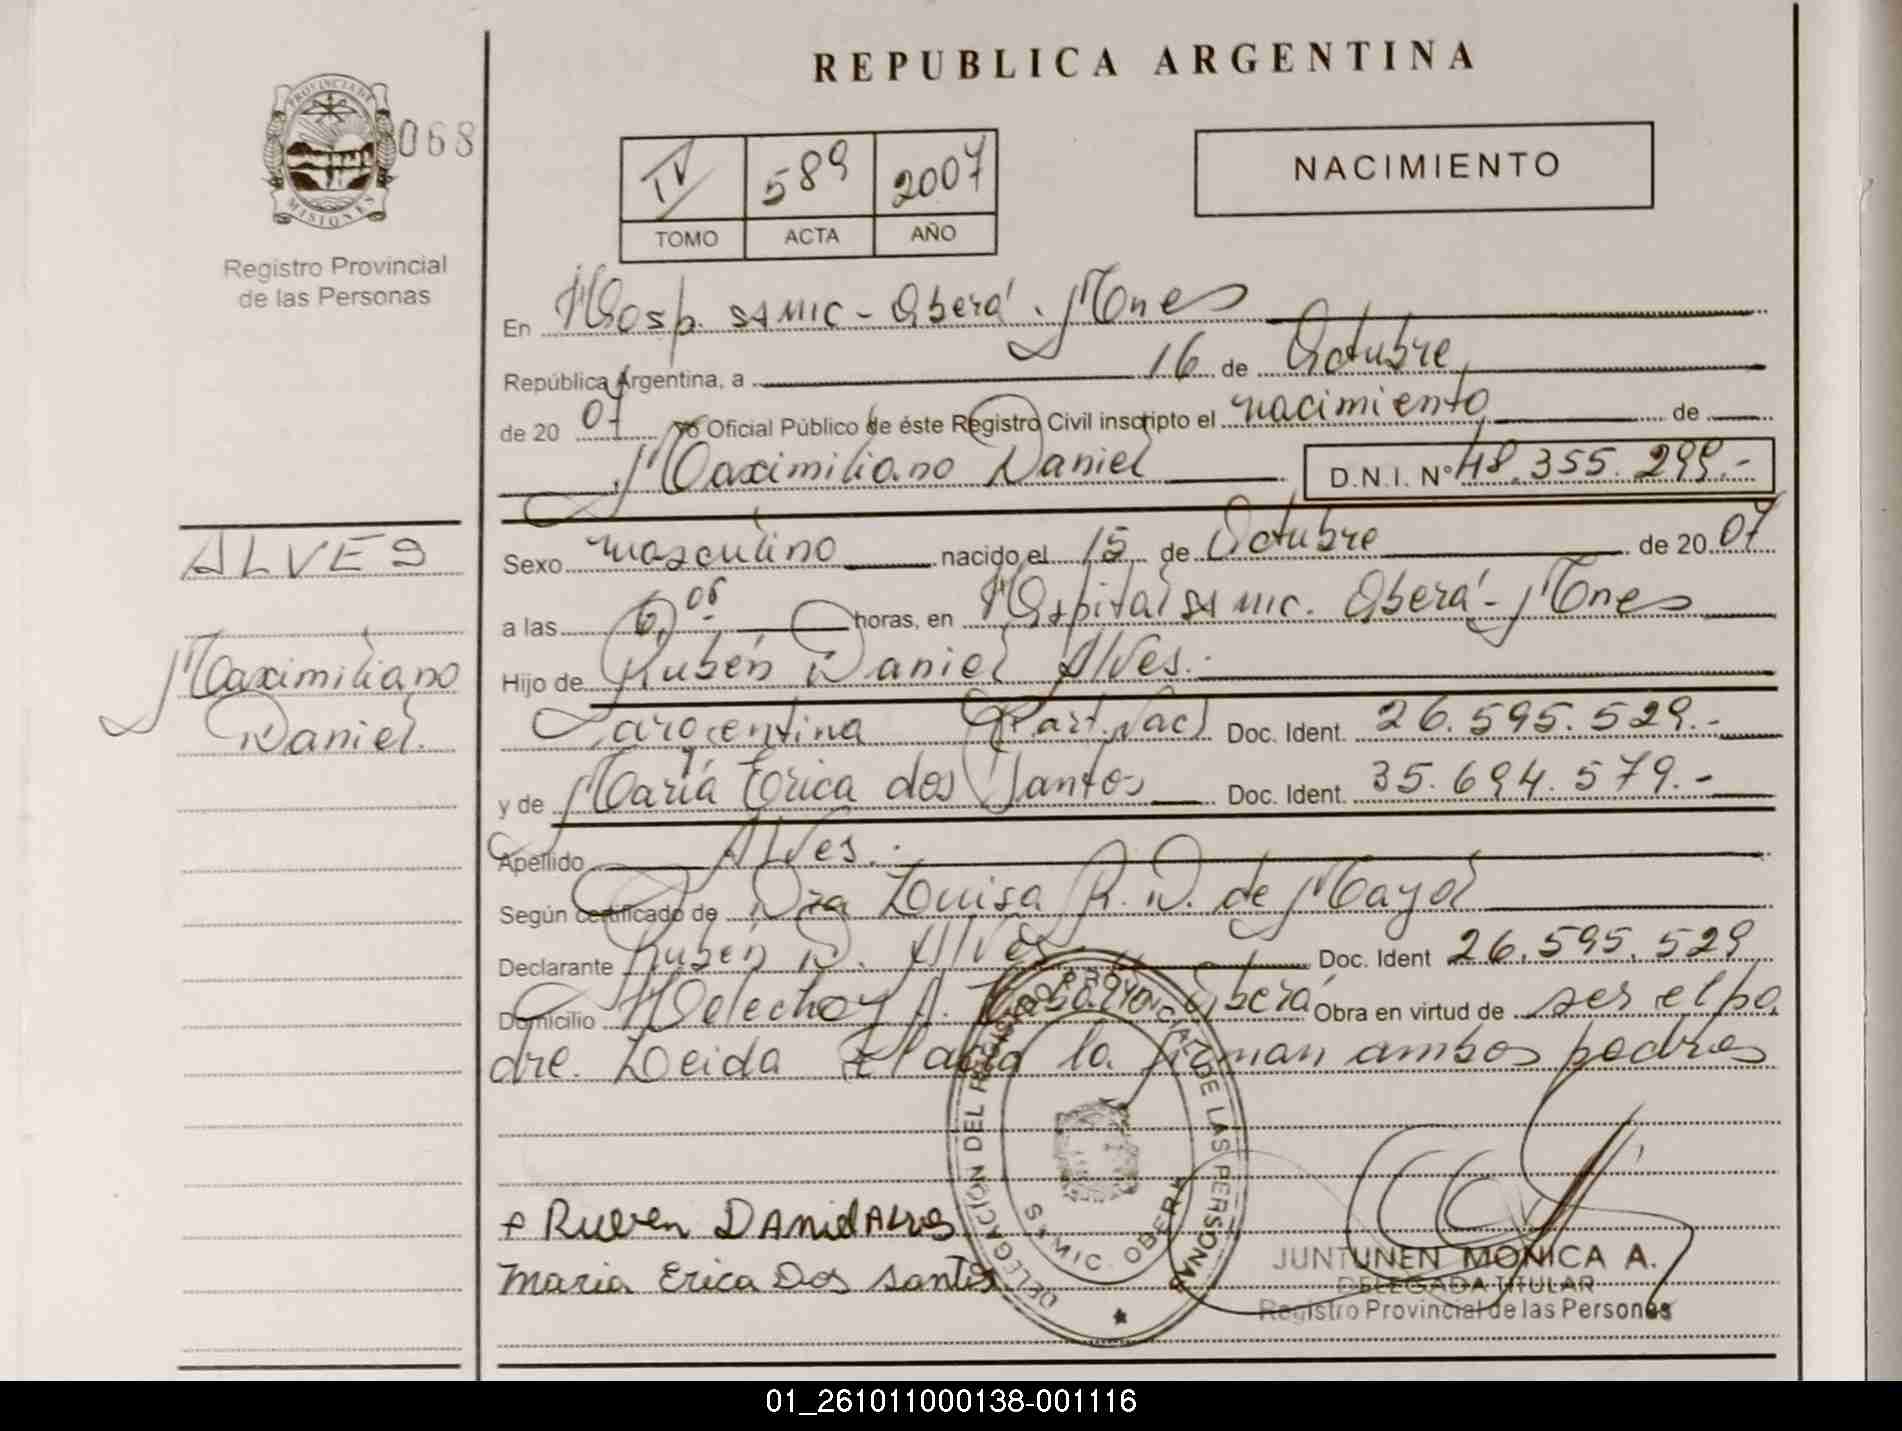 REPUBLICA ARGENTINA
PROVINCIA DE MISIONES
068
Registro Provincial
de las Personas
IV 589 2007
TOMO ACTA AÑO
NACIMIENTO
En Hosp. SAMIC - Oberá - Mnes
República Argentina, a 16 de Octubre
de 2007 yo Oficial Público de éste Registro Civil inscripto el nacimiento de
Maximiliano Daniel D.N.I. Nº 48.355.299.-
ALVES
Maximiliano
Daniel.
Sexo masculino nacido el 15 de Octubre de 2007
a las 6,05 horas, en Hospital SAMIC. Oberá - Mnes
Hijo de Rubén Daniel Alves.-
argentina Part. Nac Doc. Ident. 26.595.529.-
y de María Erica dos Santos Doc. Ident. 35.694.579.-
Apellido Alves.-
Según certificado de Dra Luisa R. D. de Mayol
Declarante Rubén D. Alves Doc. Ident 26.595.529
Domicilio A. Oberá Obra en virtud de ser el pa
dre. Leida el acta la firman ambos padres
+ Ruben DANiel ALves
Maria Erica Dos Santos
DELEGACIÓN DEL REGISTRO PROVINCIAL DE LAS PERSONAS
SAMIC. OBERA
JUNTUNEN MONICA A.
DELEGADA TITULAR
Registro Provincial de las Personas
01_261011000138-001116